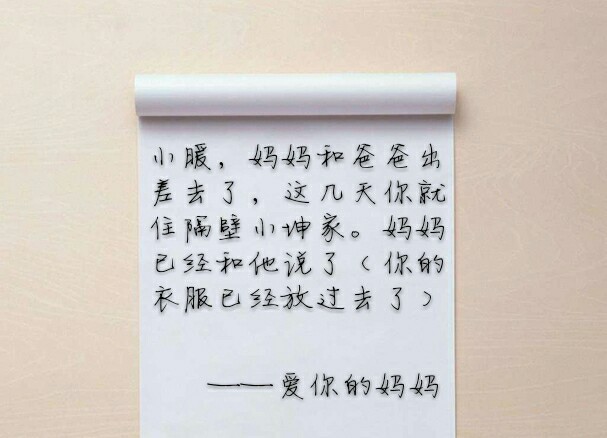 小暖，妈妈和爸爸出
差去了，这几天你就
住隔壁小坤家。妈妈
已经和他说了（你的
衣服已经放过去了）
——爱你的妈妈